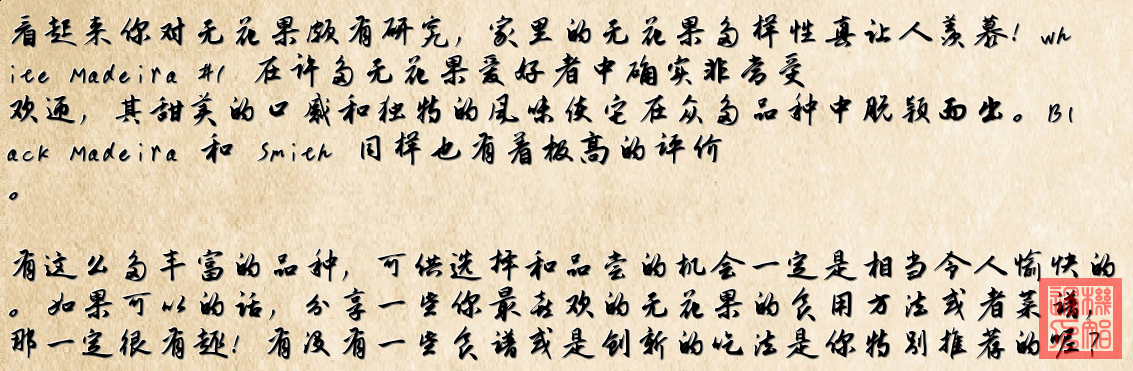 看起来你对无花果颇有研究，家里的无花果多样性真让人羡慕！Wh
ite Madeira #1 在许多无花果爱好者中确实非常受
欢迎，其甜美的口感和独特的风味使它在众多品种中脱颖而出。Bl
ack Madeira 和 Smith 同样也有着极高的评价
。
有这么多丰富的品种，可供选择和品尝的机会一定是相当令人愉快的
。如果可以的话，分享一些你最喜欢的无花果的食用方法或者菜谱，
那一定很有趣！有没有一些食谱或是创新的吃法是你特别推荐的呢？